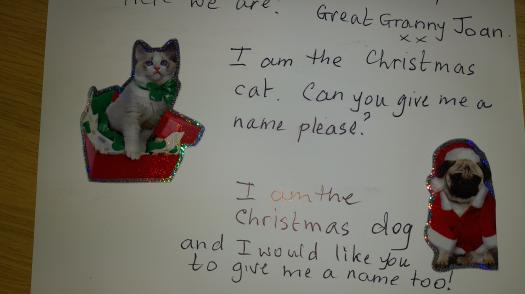 Here we are.
Great Granny Joan.
x x
I am the Christmas
cat. Can you give me a
name please?
I am the
Christmas dog
and I would like you
to give me a name too!